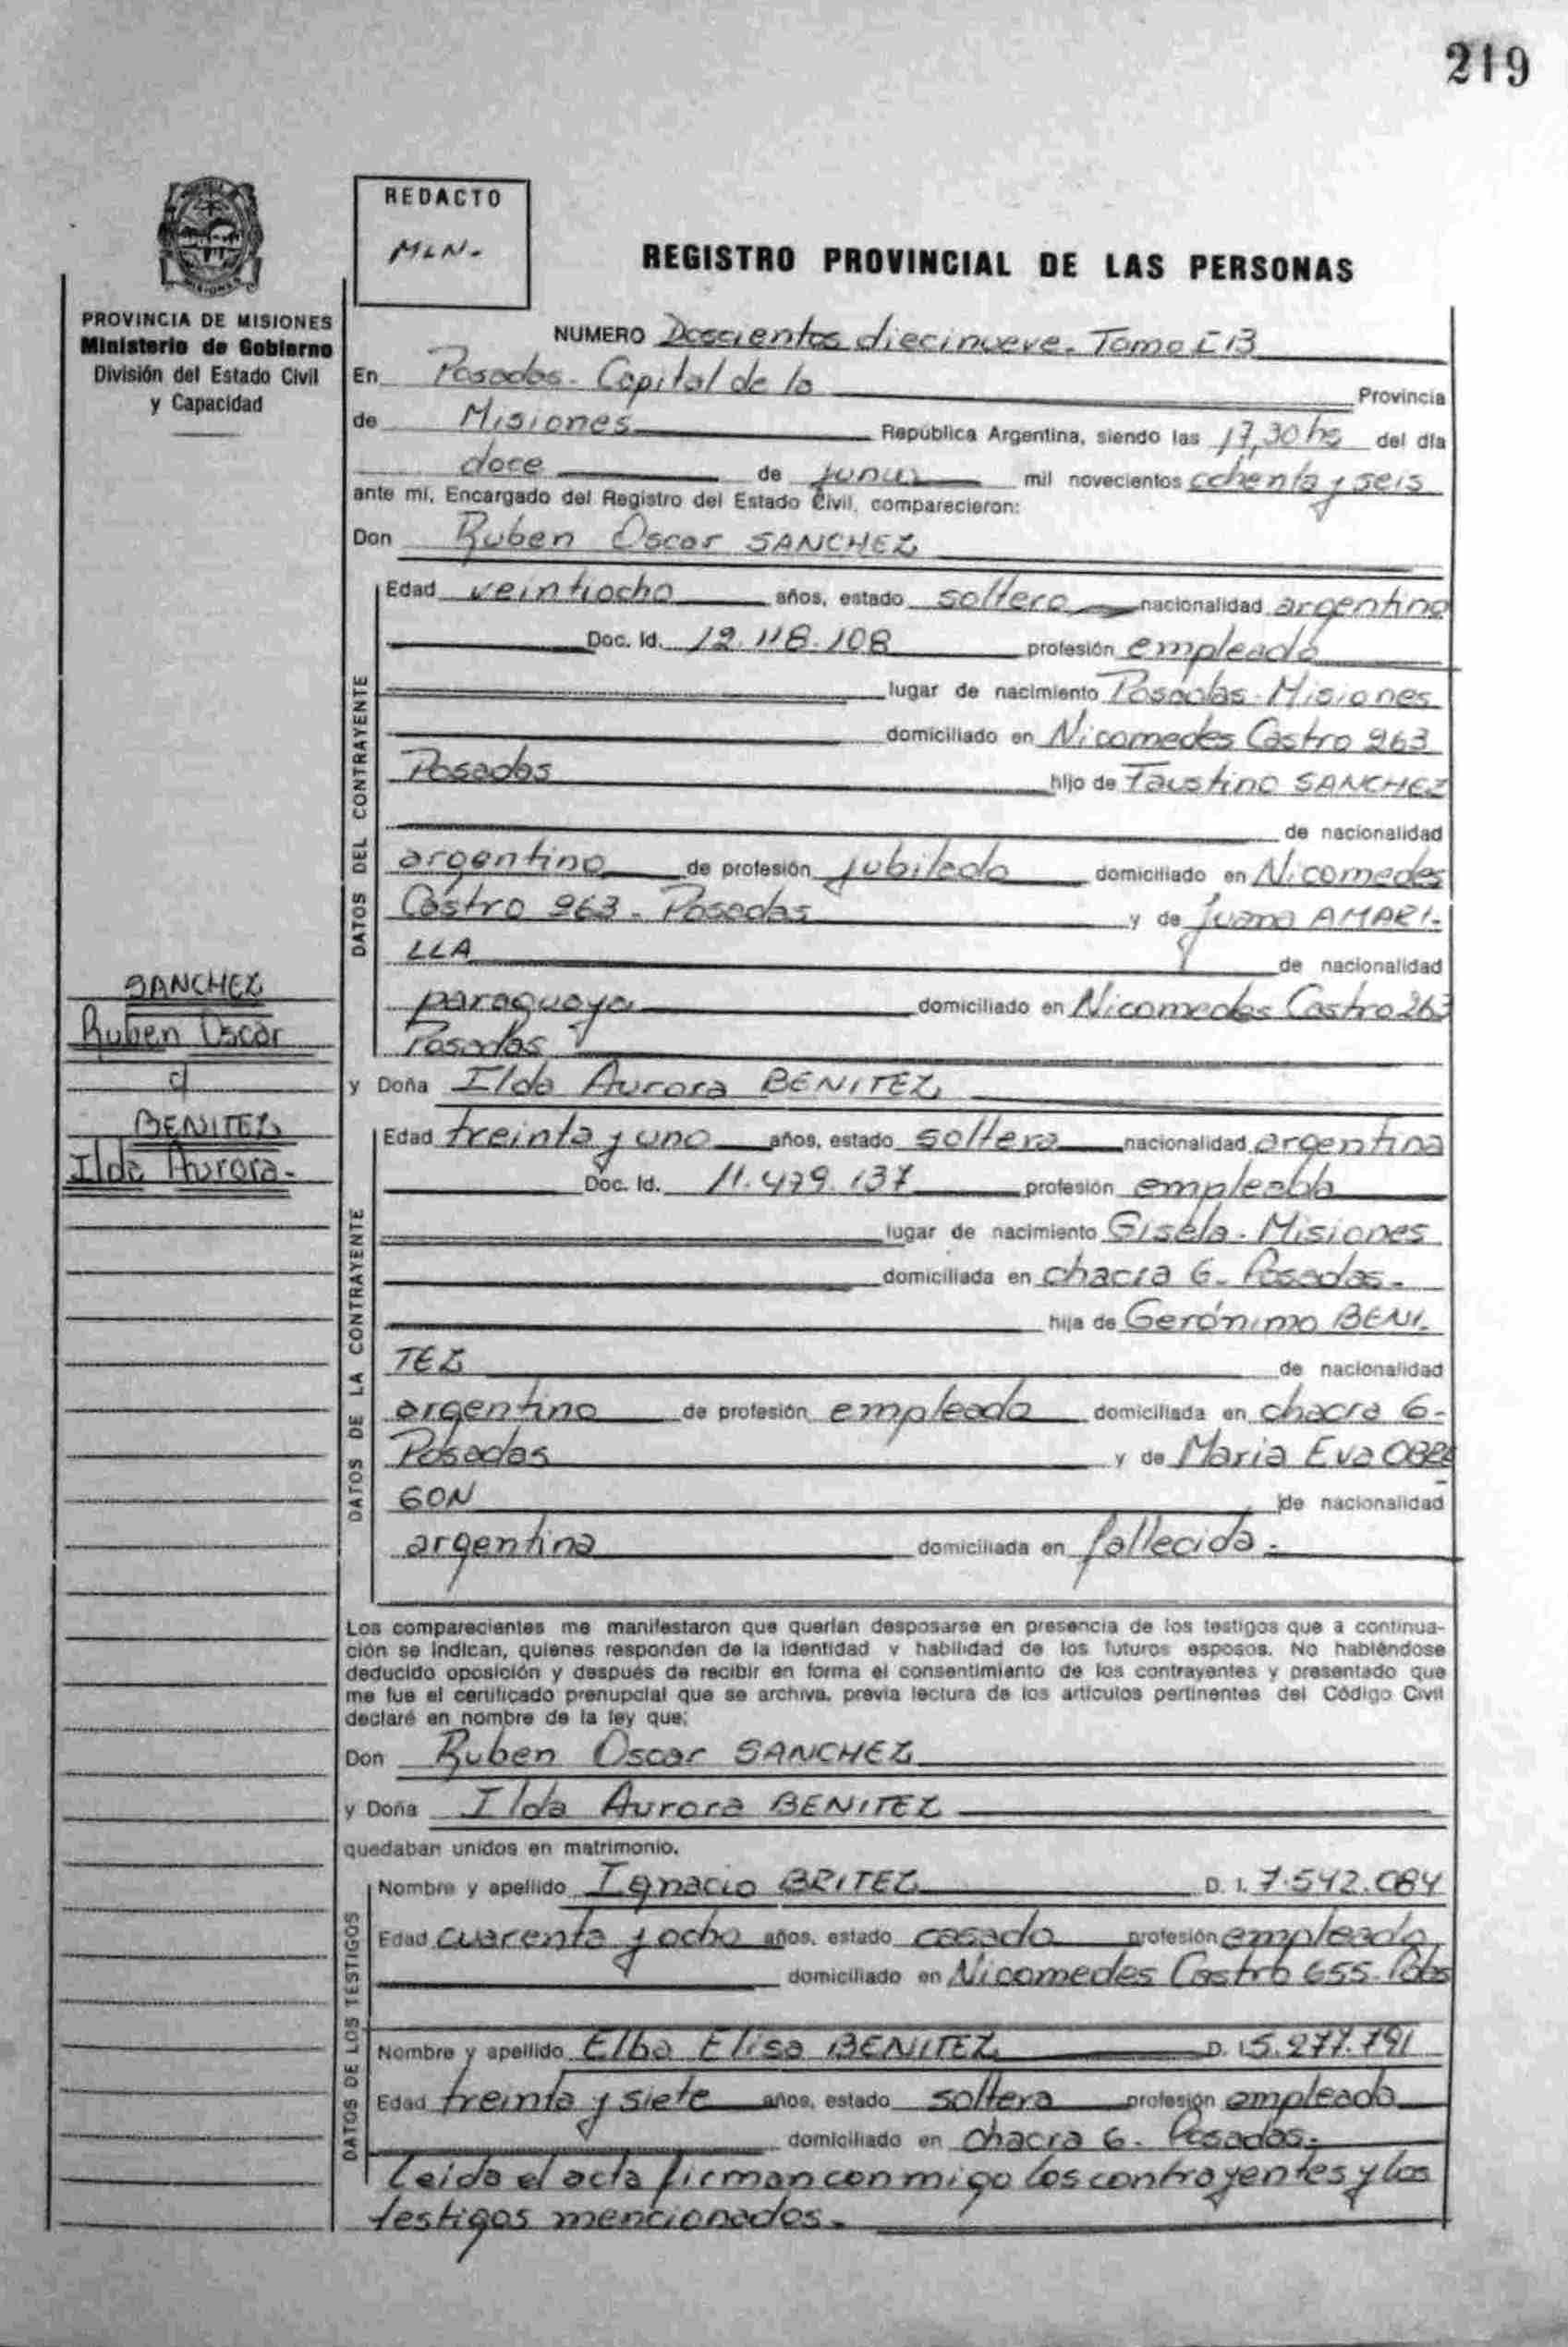 219
REDACTO
MLN-
REGISTRO PROVINCIAL DE LAS PERSONAS
MISIONES
PROVINCIA DE MISIONES
Ministerio de Gobierno
División del Estado Civil
y Capacidad
NUMERO Doscientos diecinueve. Tomo
En Posadas. Capital de la Provincia
de Misiones República Argentina, siendo las 17,30 hs del día
doce de junio mil novecientos ochenta y seis
ante mí, Encargado del Registro del Estado Civil, comparecieron:
Don Ruben Oscar SANCHEZ
DATOS DEL CONTRAYENTE
Edad veintiocho años, estado soltero nacionalidad argentino
Doc. Id. 12.118.108 profesión empleado
lugar de nacimiento Posadas-Misiones
domiciliado en Nicomedes Castro 263
Posadas hijo de Faustino SANCHEZ
de nacionalidad
argentino de profesión jubilado domiciliado en Nicomedes
Castro 263. Posadas y de Juana AMARI-
LLA de nacionalidad
paraguaya domiciliado en Nicomedes Castro 263
Posadas
SANCHEZ
Ruben Oscar
BENITEZ
Ilda Aurora-
y Doña Ilda Aurora BENITEZ
DATOS DE LA CONTRAYENTE
Edad treinta y uno años, estado soltera nacionalidad argentina
Doc. Id. 11.479.137 profesión empleada
lugar de nacimiento Gisela. Misiones
domiciliada en chacra 6. Posadas.
hija de Gerónimo BENI-
TEZ de nacionalidad
argentino de profesión empleado domiciliada en chacra 6-
Posadas y de Maria Eva OBRE
GON de nacionalidad
argentina domiciliada en fallecida.
Los comparecientes me manifestaron que querían desposarse en presencia de los testigos que a continua-
ción se indican, quienes responden de la identidad y habilidad de los futuros esposos. No habiéndose
deducido oposición y después de recibir en forma el consentimiento de los contrayentes y presentado que
me fue el certificado prenupcial que se archiva, previa lectura de los artículos pertinentes del Código Civil
declaré en nombre de la ley que;
Don Ruben Oscar SANCHEZ
y Doña Ilda Aurora BENITEZ
quedaban unidos en matrimonio.
DATOS DE LOS TESTIGOS
Nombre y apellido Ignacio BRITEZ D. I. 7.542.084
Edad cuarenta y ocho años, estado casado profesión empleado
domiciliado en Nicomedes Castro 655.
Nombre y apellido Elba Elisa BENITEZ D. I 5.277.791
Edad treinta y siete años, estado soltera profesión empleada
domiciliado en chacra 6. Posadas.
Leida el acta firman conmigo los contrayentes y los
testigos mencionados.